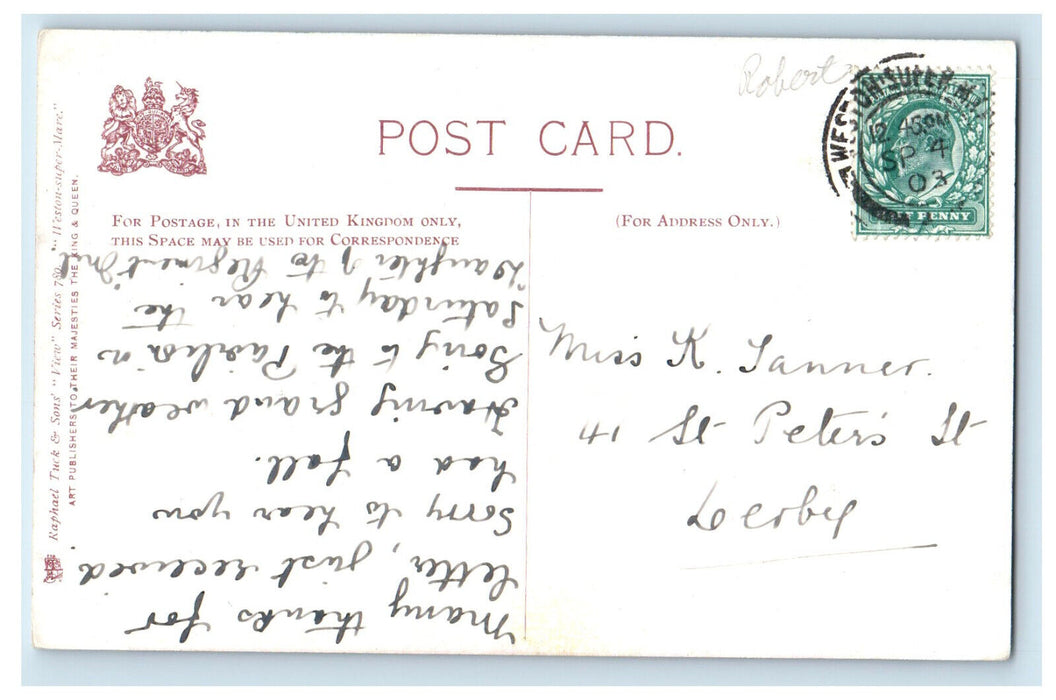 Robert
WESTON-SUPER-M
12.45PM
SP 4
03
E PENNY
POST CARD.
FOR POSTAGE, IN THE UNITED KINGDOM ONLY,
THIS SPACE MAY BE USED FOR CORRESPONDENCE
(FOR ADDRESS ONLY.)
Raphael Tuck & Sons' "View" Series 780. "Weston-super-Mare."
ART PUBLISHERS TO THEIR MAJESTIES THE KING & QUEEN.
Many thanks for
letter, just received
Sorry to hear you
had a fall.
Having grand weather
Going to the Pavilion
Saturday to hear the
Daughter of the Regiment
Miss K. Tanner.
41 St Peter's St
Derby